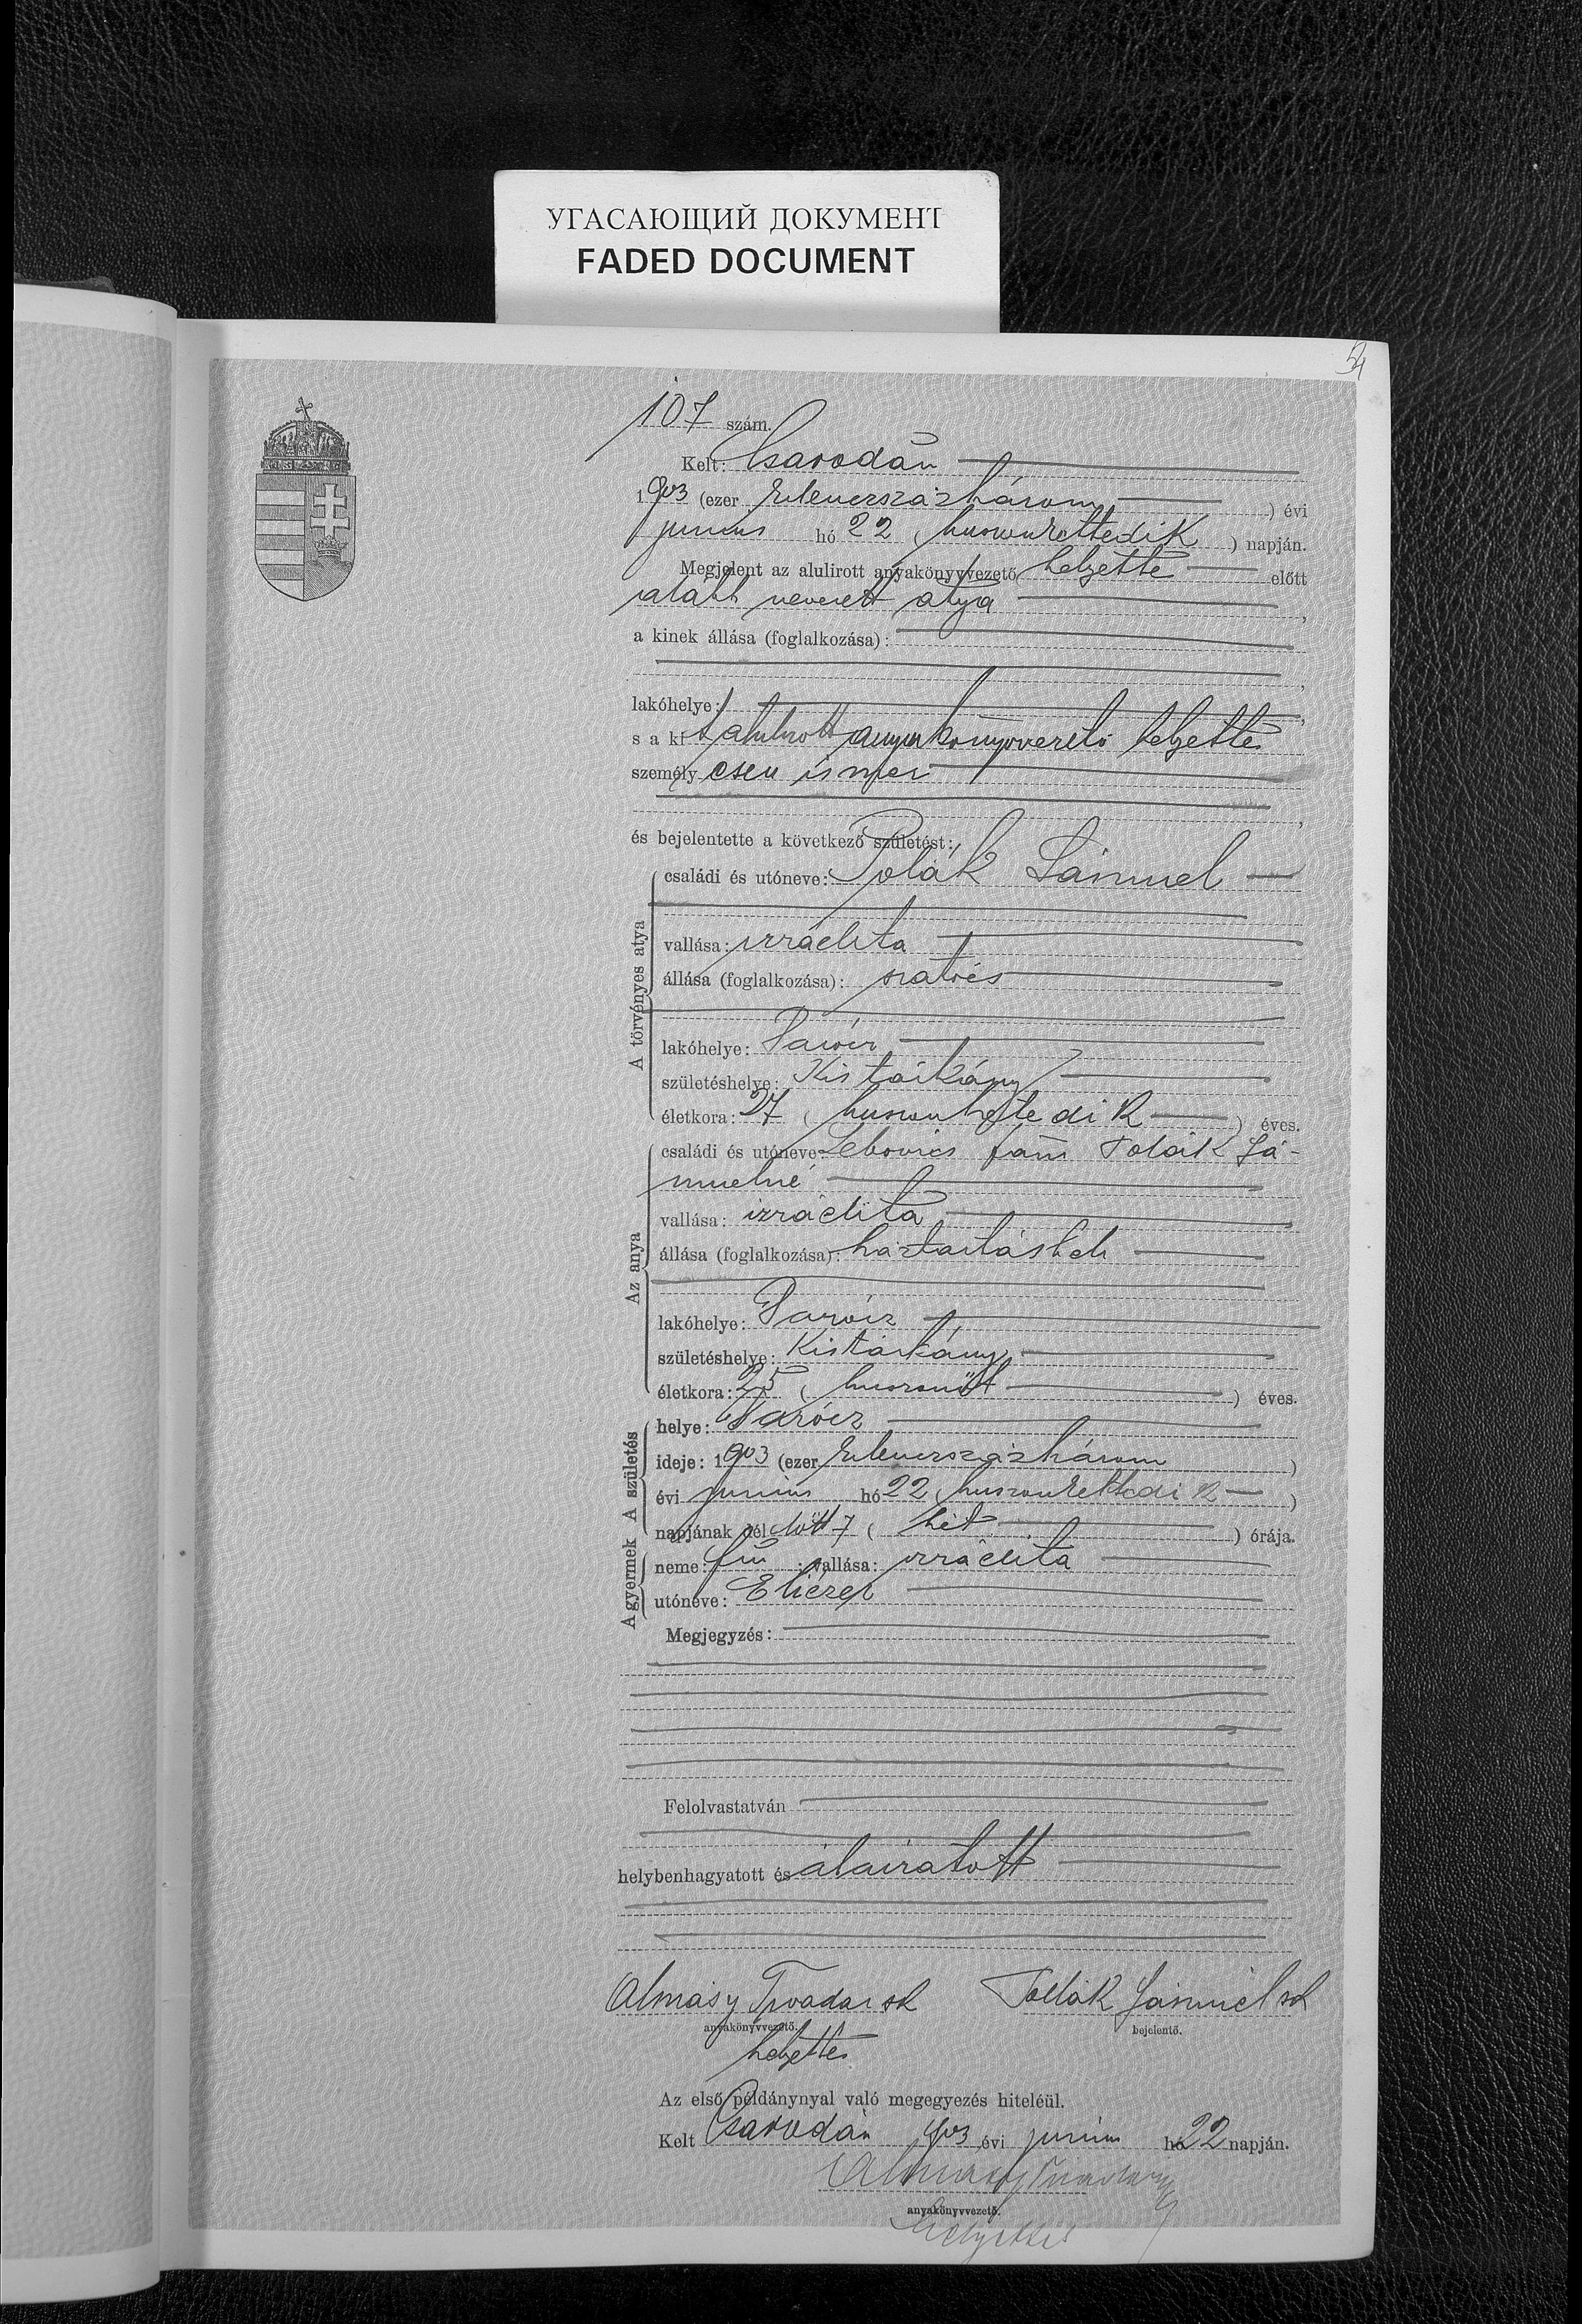 УГАСАЮЩИЙ ДОКУМЕНТ
FADED DOCUMENT
54
107 szám.
Kelt: Csarodán
1903 (ezer kilenczszázhárom) évi
junius hó 22 (huszonkettedik) napján.
Megjelent az alulirott anyakönyvvezető helyettes előtt
alább nevezett atya,
a kinek állása (foglalkozása):
lakóhelye:
s a kit alulirott anyakönyvvezető helyettes
személyesen ismer
és bejelentette a következő születést:
A törvényes atya
családi és utóneve: Polák Sámuel
vallása: izráelita
állása (foglalkozása): szatócs
lakóhelye: Davócz
születéshelye: Kis tárkány
életkora: 27 (huszonhetedik) éves.
Az anya
családi és utóneve: Lebovics Fáni Polák Sá-
muelné
vallása: izráelita
állása (foglalkozása): háztartásbeli
lakóhelye:
születéshelye: Kistárkány
életkora: 25 (huszonöt) éves.
A születés
helye:
ideje: 1903 (ezer kilenczszázhárom)
évi junius hó 22 (huszonkettedik)
napjának délelőtt 7 (hét) órája.
A gyermek
neme: fiú; vallása: izráelita
utóneve: Eliézer
Megjegyzés:
Felolvastatván
helybenhagyatott és aláiratott
Almásy Tivadar sk Pollák Sámuel sk
anyakönyvvezető. bejelentő.
helyettes
Az első példánynyal való megegyezés hiteléül.
Kelt Csarodán 903 évi junius hó 22 napján.
Almásy Tivadar
anyakönyvvezető.
helyettes